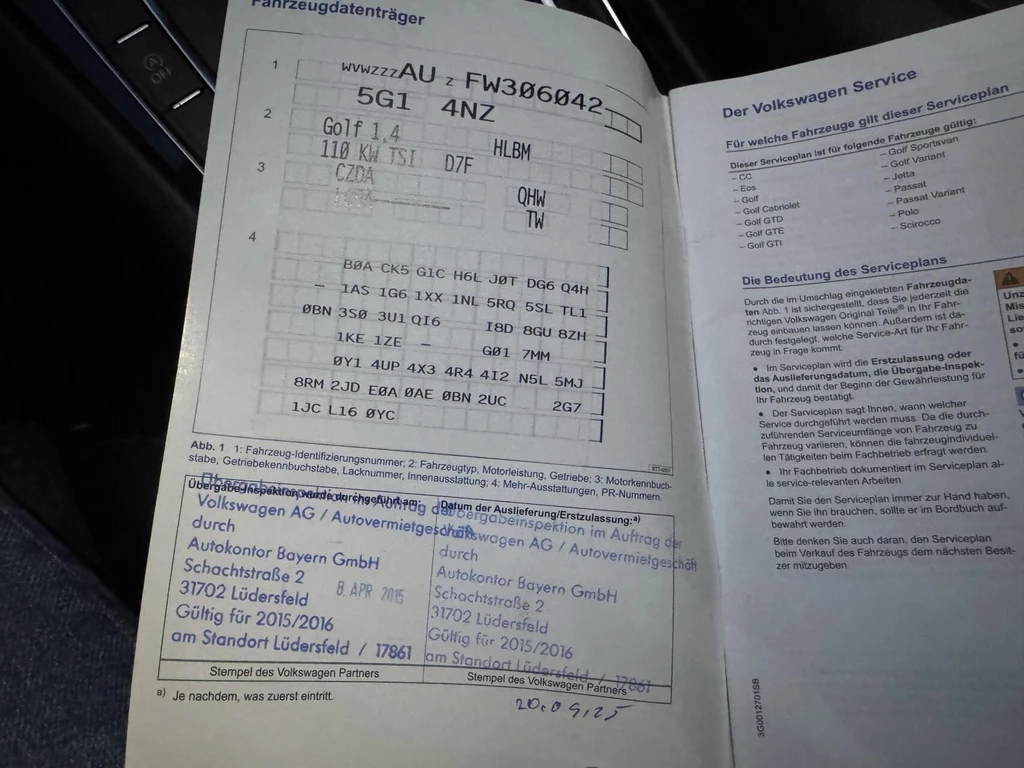 Fahrzeugdatenträger
1 WVWZZZAU Z FW306042
5G1 4NZ
2 Golf 1,4 HLBM
110 KW TSI D7F
3 CZDA QHW
TW
4
B0A CK5 G1C H6L J0T DG6 Q4H
– 1AS 1G6 1XX 1NL 5RQ 5SL TL1
0BN 3S0 3U1 QI6 I8D 8GU 8ZH
1KE 1ZE – G01 7MM
0Y1 4UP 4X3 4R4 4I2 N5L 5MJ
8RM 2JD E0A 0AE 0BN 2UC 2G7
1JC L16 0YC
Abb. 1 1: Fahrzeug-Identifizierungsnummer; 2: Fahrzeugtyp, Motorleistung, Getriebe; 3: Motorkennbuch-
stabe, Getriebekennbuchstabe, Lacknummer, Innenausstattung; 4: Mehr-Ausstattungen, PR-Nummern.
Übergabe-Inspektion wurde durchgeführt am:
Volkswagen AG / Autovermietgeschäft
durch
Autokontor Bayern GmbH
Schachtstraße 2
31702 Lüdersfeld
8. APR 2015
Gültig für 2015/2016
am Standort Lüdersfeld / 17861
Stempel des Volkswagen Partners
Datum der Auslieferung/Erstzulassung:a)
Übergabeinspektion im Auftrag der
Volkswagen AG / Autovermietgeschäft
durch
Autokontor Bayern GmbH
Schachtstraße 2
31702 Lüdersfeld
Gültig für 2015/2016
am Standort Lüdersfeld / 17861
Stempel des Volkswagen Partners
a) Je nachdem, was zuerst eintritt.
Der Volkswagen Service
Für welche Fahrzeuge gilt dieser Serviceplan
Dieser Serviceplan ist für folgende Fahrzeuge gültig:
– CC
– Eos
– Golf
– Golf Cabriolet
– Golf GTD
– Golf GTE
– Golf GTI
– Golf Sportsvan
– Golf Variant
– Jetta
– Passat
– Passat Variant
– Polo
– Scirocco
Die Bedeutung des Serviceplans
Durch die im Umschlag eingeklebten Fahrzeugda-
ten Abb. 1 ist sichergestellt, dass Sie jederzeit die
richtigen Volkswagen Original Teile® in Ihr Fahr-
zeug einbauen lassen können. Außerdem ist da-
durch festgelegt, welche Service-Art für Ihr Fahr-
zeug in Frage kommt.
• Im Serviceplan wird die Erstzulassung oder
das Auslieferungsdatum, die Übergabe-Inspek-
tion, und damit der Beginn der Gewährleistung für
Ihr Fahrzeug bestätigt.
• Der Serviceplan sagt Ihnen, wann welcher
Service durchgeführt werden muss. Da die durch-
zuführenden Serviceumfänge von Fahrzeug zu
Fahrzeug variieren, können die fahrzeugindividuel-
len Tätigkeiten beim Fachbetrieb erfragt werden.
• Ihr Fachbetrieb dokumentiert im Serviceplan al-
le service-relevanten Arbeiten.
Damit Sie den Serviceplan immer zur Hand haben,
wenn Sie ihn brauchen, sollte er im Bordbuch auf-
bewahrt werden.
Bitte denken Sie auch daran, den Serviceplan
beim Verkauf des Fahrzeugs dem nächsten Besit-
zer mitzugeben.
3G0012701SB